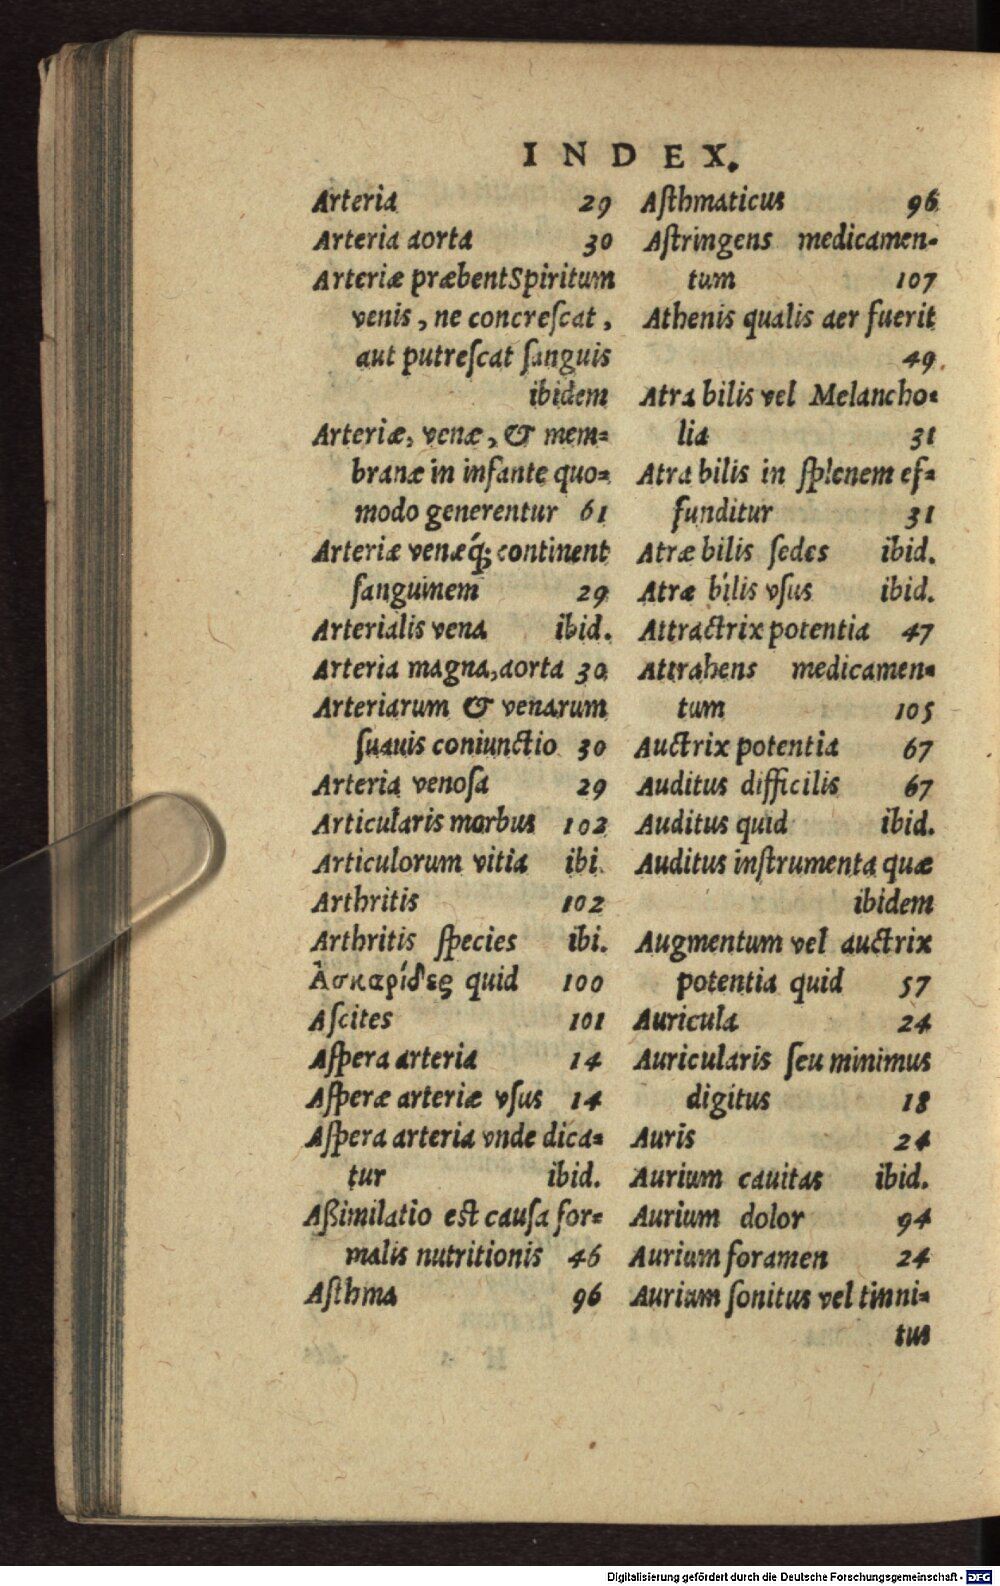 INDEX.
Arteria 29
Arteria aorta 30
Arteriæ præbent Spiritum
venis, ne concreſcat,
aut putreſcat ſanguis
ibidem
Arteriæ, venæ, & mem=
branæ in infante quo=
modo generentur 61
Arteriæ venæq́; continent
ſanguinem 29
Arterialis vena ibid.
Arteria magna, aorta 30
Arteriarum & venarum
ſuauis coniunctio 30
Arteria venoſa 29
Articularis morbus 102
Articulorum vitia ibi.
Arthritis 102
Arthritis ſpecies ibi.
Ἀσκαρίδες quid 100
Aſcites 101
Aſpera arteria 14
Aſperæ arteriæ vſus 14
Aſpera arteria vnde dica=
tur ibid.
Aßimilatio est cauſa for=
malis nutritionis 46
Aſthma 96
Aſthmaticus 96
Aſtringens medicamen=
tum 107
Athenis qualis aer fuerit
49.
Atra bilis vel Melancho=
lia 31
Atra bilis in ſplenem ef=
funditur 31
Atræ bilis ſedes ibid.
Atræ bilis vſus ibid.
Attractrix potentia 47
Attrahens medicamen=
tum 105
Auctrix potentia 67
Auditus difficilis 67
Auditus quid ibid.
Auditus inſtrumenta quæ
ibidem
Augmentum vel auctrix
potentia quid 57
Auricula 24
Auricularis ſeu minimus
digitus 18
Auris 24
Aurium cauitas ibid.
Aurium dolor 94
Aurium foramen 24
Aurium ſonitus vel tinni=
tus
Digitalisierung gefördert durch die Deutsche Forschungsgemeinschaft - DFG